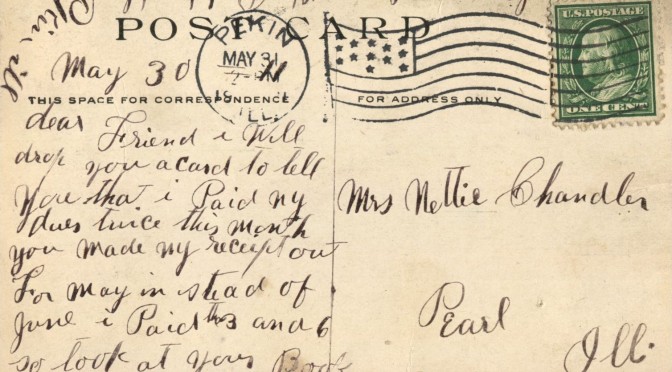 Pekin Ill
POST CARD
PEKIN
MAY 31
ILL.
U.S. POSTAGE
ONE CENT
May 30
THIS SPACE FOR CORRESPONDENCE
FOR ADDRESS ONLY
dear Friend i Will
drop you a card to tell
you that i Paid my
dues twice this Month
you made my receipt out
For May in stead of
June i Paid the 3 and 6
so look at your Book
Mrs Nettie Chandler
Pearl
Ills